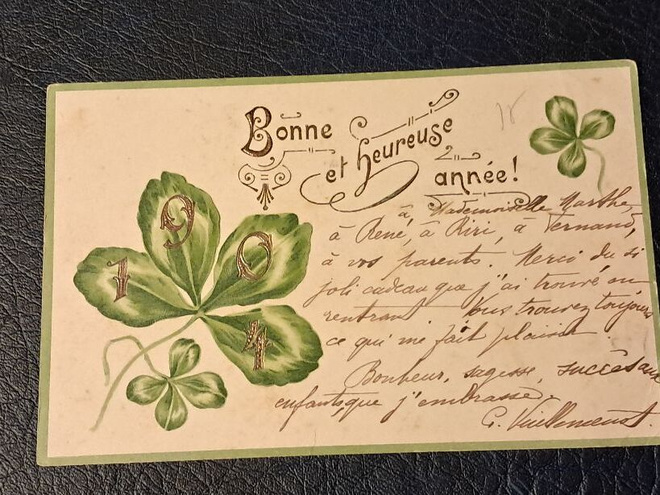 Bonne
et heureuse
année!
1904
à Mademoiselle Marthe,
à René, à Riri, à Fernand,
à vos parents. Merci du si
joli cadeau que j'ai trouvé en
rentrant. Vous trouvez toujours
ce qui me fait plaisir.
Bonheur, sagesse, succès aux
enfants que j'embrasse.
G. Vuillemenot.